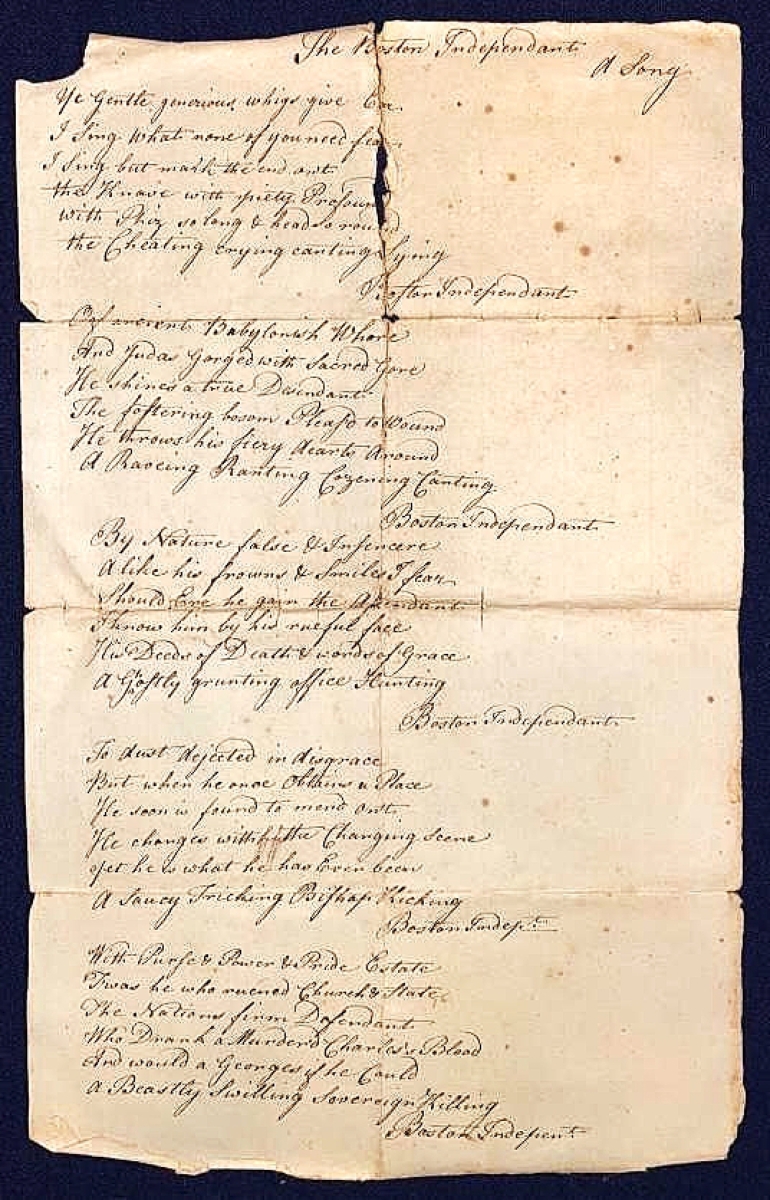 The Boston Independant
A Song
Ye Gentle generious whigs give Ear
I Sing what none of you need fear
I Sing but mark the end ont
the Knave with piety Profound
with Phiz so long & head so round
the Cheating crying canting Lying
Boston Independant
Of ancient Babylonish Whore
And Judas Gorged with Sacred Gore
He shines a true Desendant
The fostering bosom Pleasd to Wound
He throws his fiery dearts Around
A Raveing Ranting Cozening Canting
Boston Independant
By Nature false & Insencere
Alike his frowns & Smiles I fear
Should Ere he gain the Assendant
I know him by his rueful face
His Deeds of Death & words of Grace
A Gostly grunting office Hunting
Boston Independant
To dust dejected in disgrace
But when he once Obtains a Place
He soon is found to mend ont
He changes with the Changing Scene
yet he is what he has Even been
A Saucy Tricking Bishap Kicking
Boston Indept.
With Purse & Power & Pride Estate
Twas he who ruened Church & State
The Nations firm Defendant
Who Drank a Murderd Charles's Blood
And would a Georges if he Could
A Beastly Swilling Sovereign Killing
Boston Indepent